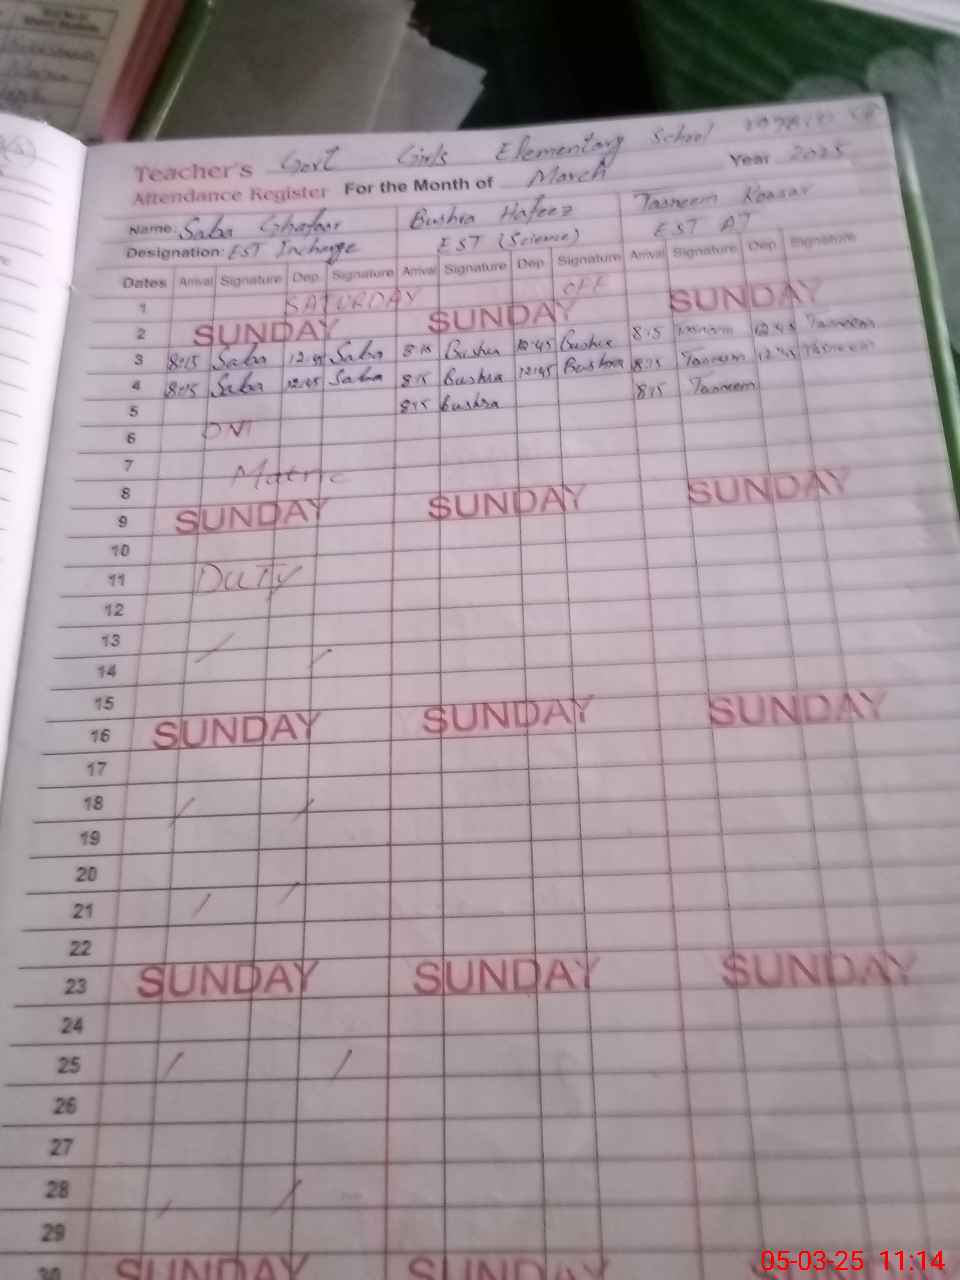 Teacher's Govt Girls Elementary School
Attendance Register For the Month of March Year 2025
Name: Saba Ghafoor Bushra Hafeez Tasneem Koasar
Designation: EST Incharge EST (Science) EST AT
Dates Arrival Signature Dep. Signature Arrival Signature Dep. Signature Arrival Signature Dep. Signature
1 SATURDAY OFF
2 SUNDAY SUNDAY SUNDAY
3 8:15 Saba 12:45 Saba 8:15 Bushra 12:45 Bushra 8:15 12:45 Tasneem
4 8:15 Saba 12:45 Saba 8:15 Bushra 12:45 Bushra 8:15 Tasneem 12:45 Tasneem
5 8:15 Bushra 8:15 Tasneem
6 ON
7 Matric
8
9 SUNDAY SUNDAY SUNDAY
10
11 DUTY
12
13
14
15
16 SUNDAY SUNDAY SUNDAY
17
18
19
20
21
22
23 SUNDAY SUNDAY SUNDAY
24
25
26
27
28
29
30 SUNDAY SUNDAY
05-03-25 11:14